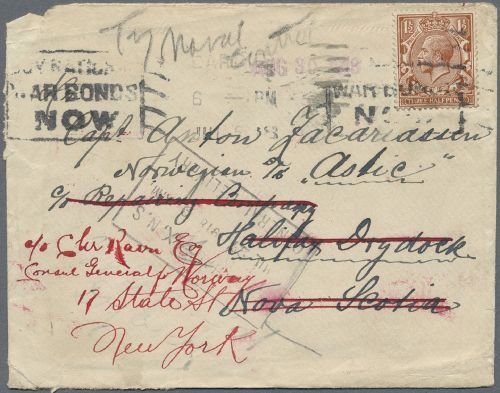 Try Naval Control
AUG 30
BUY NATIONAL
WAR BONDS
NOW
6 PM
WAR BONDS
NOW
THREE HALFPENCE
Capt. Anton Zacariassen
Norwegian S/S "Astic"
c/o Repairing Company
Halifax Drydock
Nova Scotia
c/o Chr Ravn Esq
Consul General of Norway
17 State St
New York